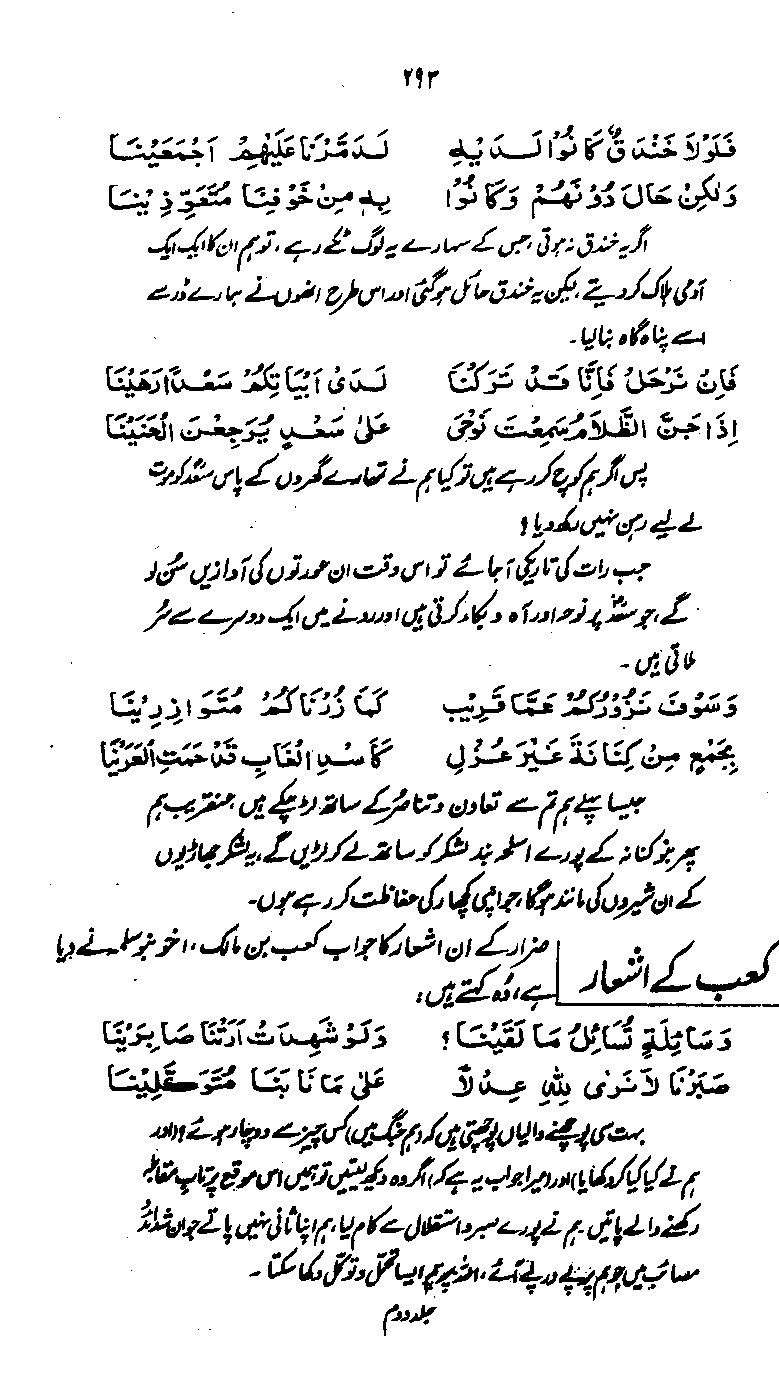 ۲۹۳
فَلَوْلَا خَنْدَقٌ كَانُوْا لَدَيْهِ لَدَمَّرْنَا عَلَيْهِمْ اَجْمَعِيْنَا
وَلٰكِنْ حَالَ دُوْنَهُمْ وَكَانُوْا بِهٖ مِنْ خَوْفِنَا مُتَعَوِّذِيْنَا
اگر یہ خندق نہ ہوتی، جس کے سہارے یہ لوگ ٹکے رہے، تو ہم ان کا ایک ایک
آدمی ہلاک کر دیتے، لیکن یہ خندق حائل ہو گئی اور اس طرح انھوں نے ہمارے ڈر سے
اسے پناہ گاہ بنا لیا۔
فَاِنْ نَرْحَلْ فَاِنَّا قَدْ تَرَكْنَا لَدٰى اَبْيَاتِكُمْ سَعْدًا رَهِيْنَا
اِذَا جَنَّ الظَّلَامُ سَمِعْتَ نَوْحٰى عَلٰى سَعْدٍ يُرَجِّعْنَ الْحَنِيْنَا
پس اگر ہم کوچ کر رہے ہیں تو کیا ہم نے تمہارے گھروں کے پاس سعدؓ کو موت
کے لیے رہن نہیں رکھ دیا؟
جب رات کی تاریکی آ جائے تو اس وقت ان عورتوں کی آوازیں سُن لو
گے، جو سعدؓ پر نوحہ اور آہ و بکاء کرتی ہیں اور رونے میں ایک دوسرے سے سُر
ملاتی ہیں۔
وَسَوْفَ نَزُوْرُكُمْ عَمَّا قَرِيْبٍ كَمَا زُرْنَاكُمْ مُتَوَازِرِيْنَا
بِجَمْعٍ مِنْ كِنَانَةَ غَيْرَ عُزْلٍ كَاُسْدِ الْغَابِ قَدْ حَمَتِ الْعَرِيْنَا
جیسا پہلے ہم تم سے تعاون و تناصُر کے ساتھ لڑ چکے ہیں، عنقریب ہم
پھر بنو کنانہ کے پورے اسلحہ بند لشکر کو ساتھ لے کر لڑیں گے، یہ لشکر جھاڑیوں
کے ان شیروں کی مانند ہوگا، جو اپنی کچھار کی حفاظت کر رہے ہوں۔
کعب کے اشعار
ضرار کے ان اشعار کا جواب کعب بن مالک، اخو بنو سلمہ نے دیا
ہے، وُہ کہتے ہیں:
وَسَائِلَةٍ تُسَائِلُ مَا لَقِيْنَا؟ وَلَوْ شَهِدَتْ اَرَتْنَا صَابِرِيْنَا
صَبَرْنَا لَا نَرٰى لِلّٰهِ عِدْلًا عَلٰى مَا نَابَنَا مُتَوَكِّلِيْنَا
بہت سی پوچھنے والیاں پوچھتی ہیں کہ ہم (جنگ میں) کس چیز سے دوچار ہوئے؟ (اور
ہم نے کیا کیا کر دکھایا) اور (میرا جواب یہ ہے کہ) اگر وہ دیکھ لیتیں تو ہمیں اس موقع پر تابِ مقابلہ
رکھنے والے پاتیں۔ ہم نے پورے صبر و استقلال سے کام لیا، ہم اپنا ثانی نہیں پاتے جو ان شدائد
مصائب میں جو ہم پر پے در پے آئے، اللہ پر ایسا تحمّل و توکّل دکھا سکتا۔
جلد دوم